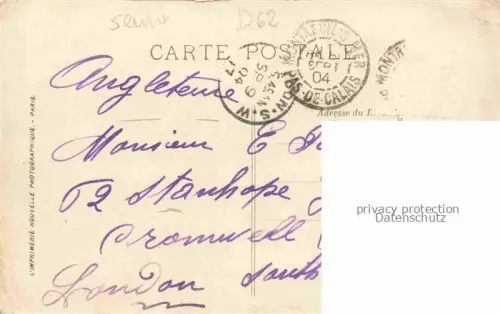 D62
CARTE POSTALE
MONTREUIL-S-MER
SEPT
04
PAS DE CALAIS
MONTR
8.45 AM
SP 9
04
S.W.
Adresse du
Angleterre
Monsieur E
62 Stanhope
Cromwell
London South
L'IMPRIMERIE NOUVELLE PHOTOGRAPHIQUE - PARIS.
privacy protection
Datenschutz